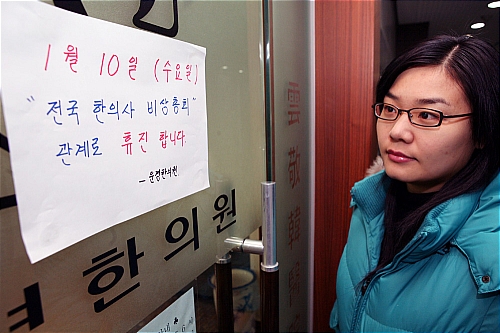 1월 10일 (수요일)
"전국 한의사 비상총회"
관계로 휴진 합니다.
한의원
雲敬韓